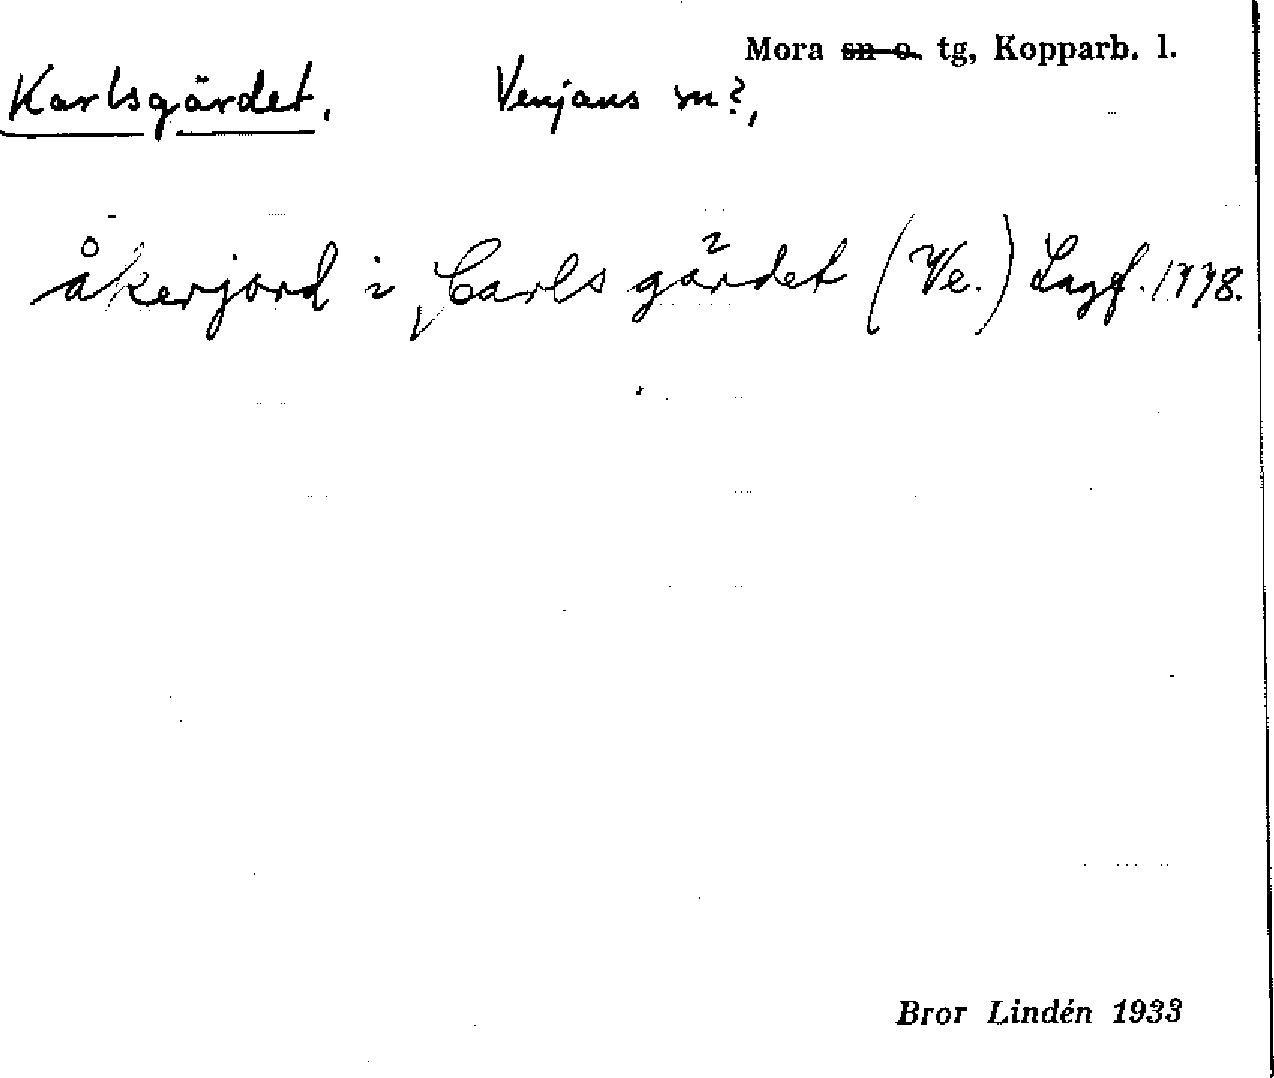 Mora sn o. tg, Kopparb. l.
Karlsgärdet. Venjans sn?,
åkerjord i Carlsgärdet (Ve.) Lagf. 1778.
Bror Lindén 1933